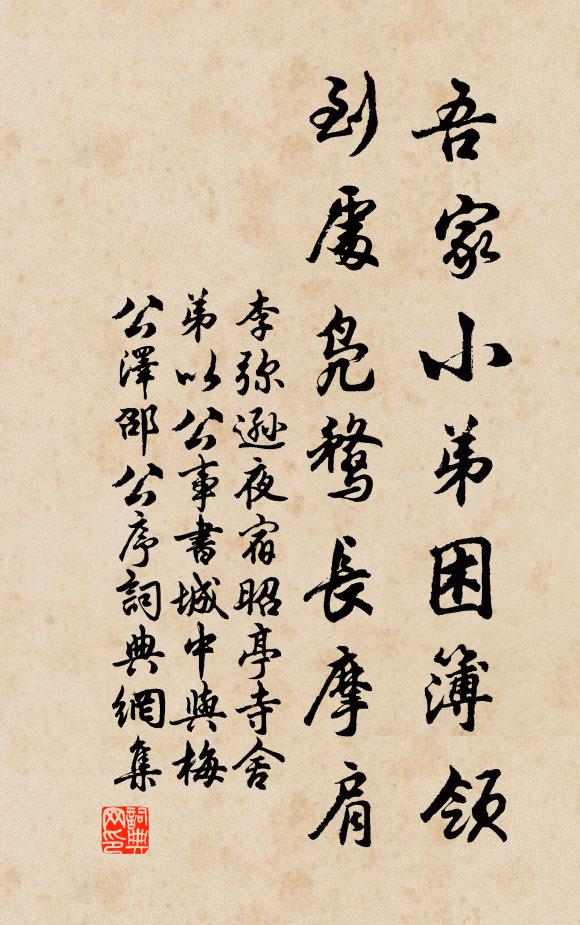 吾家小弟困簿領
到處鳧鶩長摩肩
李弥遜夜宿昭亭寺舍
弟以公事書城中與梅
公澤邵公序詞典網集
詞典网印